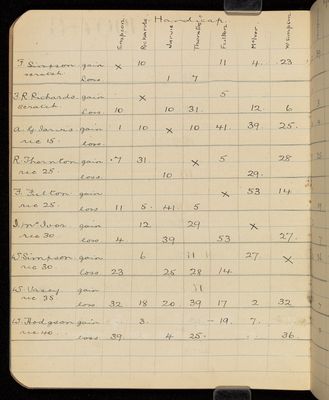 Handicap.
Simpson Richards Jarvis Thornton Fulton McIvor W Simpson
F. Simpson gain × 10 11 4 23
scratch. loss 1 7
F.R. Richards gain × 5
scratch. loss 10 10 31 12 6
A.G. Jarvis gain 1 10 × 10 41 39 25
rec 15. loss
R. Thornton gain 7 31 × 5 28
rec 25. loss 10 29
F. Fulton gain × 53 14
rec 25. loss 11 5 41 5
McIvor gain 12 29 ×
rec 30 loss 4 39 53 27
W Simpson gain 6 11 27 ×
rec 30 loss 23 25 28 14
W. gain 11
rec 35 loss 32 18 20 39 17 2 32
W. Hodgson gain 3 19 7
rec 40 loss 39 4 25 36